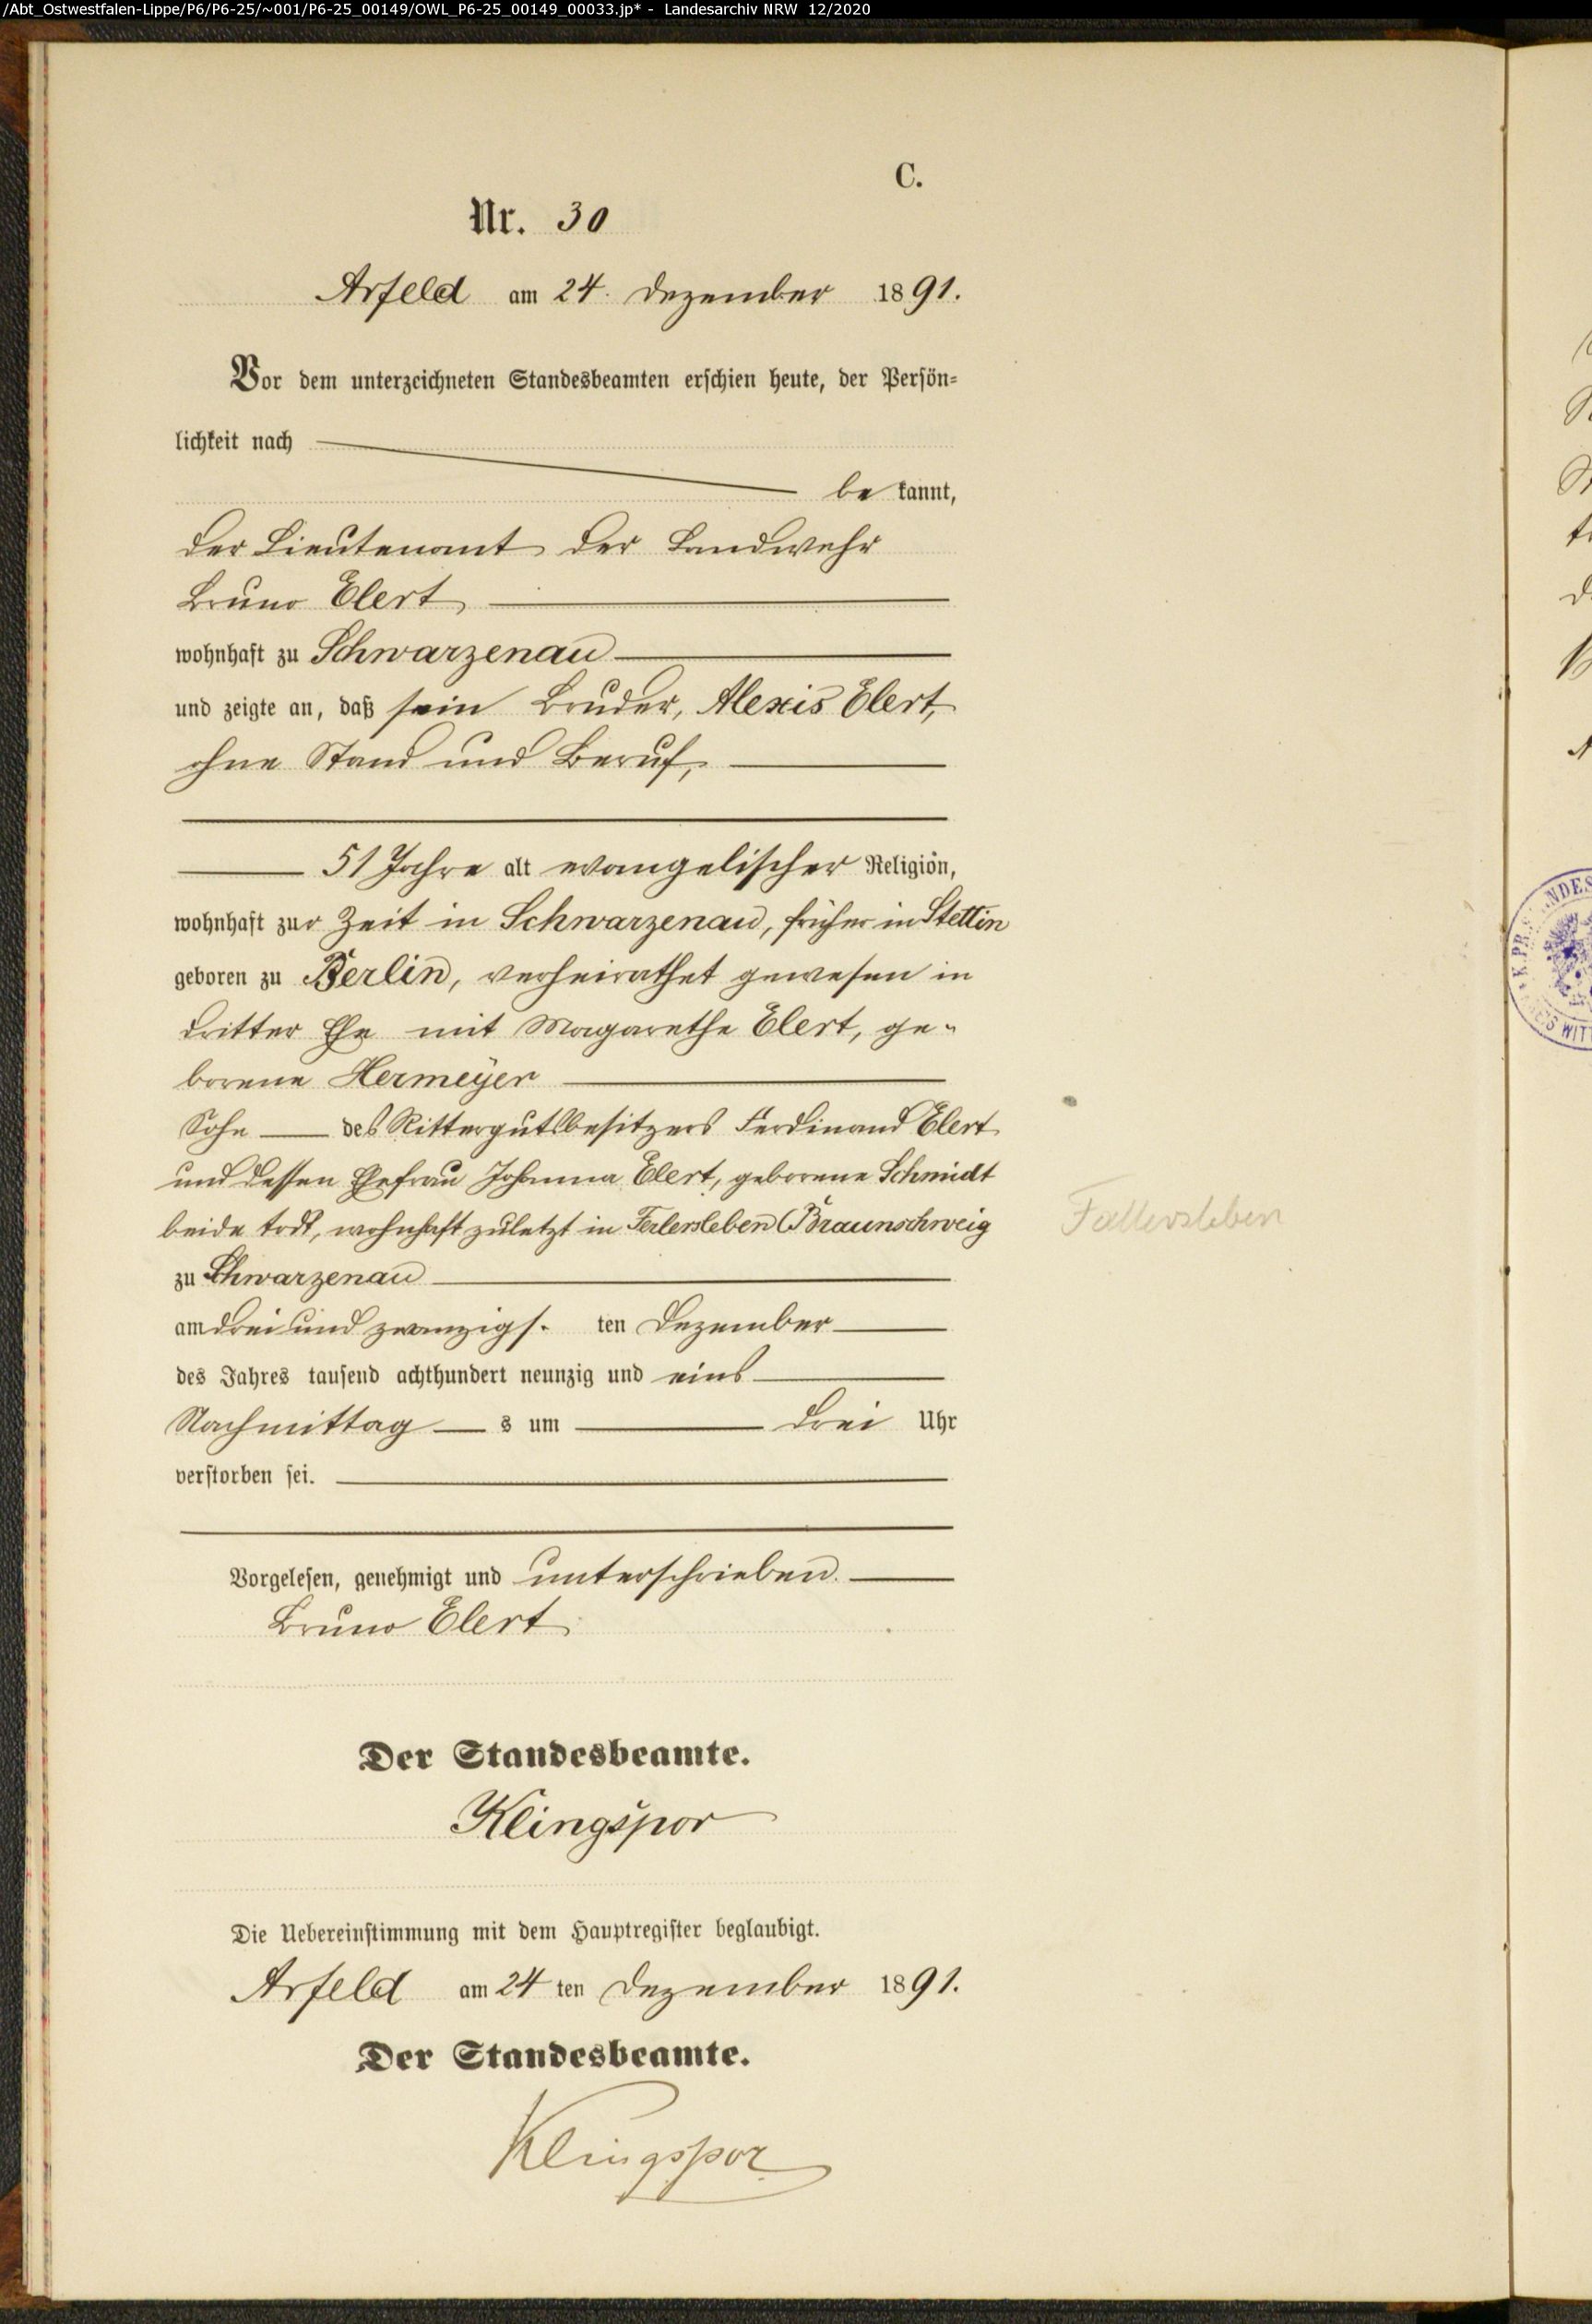 /Abt_Ostwestfalen-Lippe/P6/P6-25/~001/P6-25_00149/OWL_P6-25_00149_00033.jp* - Landesarchiv NRW 12/2020
C.
Nr. 30
Arfeld am 24. Dezember 1891.
Vor dem unterzeichneten Standesbeamten erschien heute, der Persön-
lichkeit nach
be kannt,
der Lieutenant der Landwehr
Bruno Elert
wohnhaft zu Schwarzenau
und zeigte an, daß sein Bruder, Alexis Elert,
ohne Stand und Beruf,
51 Jahre alt evangelischer Religion,
wohnhaft zur Zeit in Schwarzenau, früher in Stettin
geboren zu Berlin, verheirathet gewesen in
dritter Ehe mit Magarethe Elert, ge-
borene Hermeyer
Sohn des Rittergutsbesitzers Ferdinand Elert
und dessen Ehefrau Johanna Elert, geborene Schmidt
beide todt, wohnhaft zuletzt in Ferlersleben (Braunschweig
zu Schwarzenau
am drei und zwanzigs. ten Dezember
des Jahres tausend achthundert neunzig und eins
Nachmittag s um drei Uhr
verstorben sei.
Vorgelesen, genehmigt und unterschrieben.
Bruno Elert
Der Standesbeamte.
Klingspor
Die Uebereinstimmung mit dem Hauptregister beglaubigt.
Arfeld am 24 ten Dezember 1891.
Der Standesbeamte.
Klingspor
Fallersleben